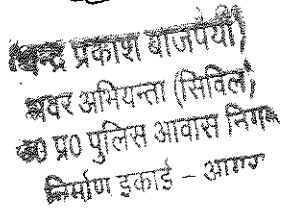 (चन्द्र प्रकाश बाजपेयी)
अवर अभियन्ता (सिविल)
उ0 प्र0 पुलिस आवास निगम
निर्माण इकाई - आगरा